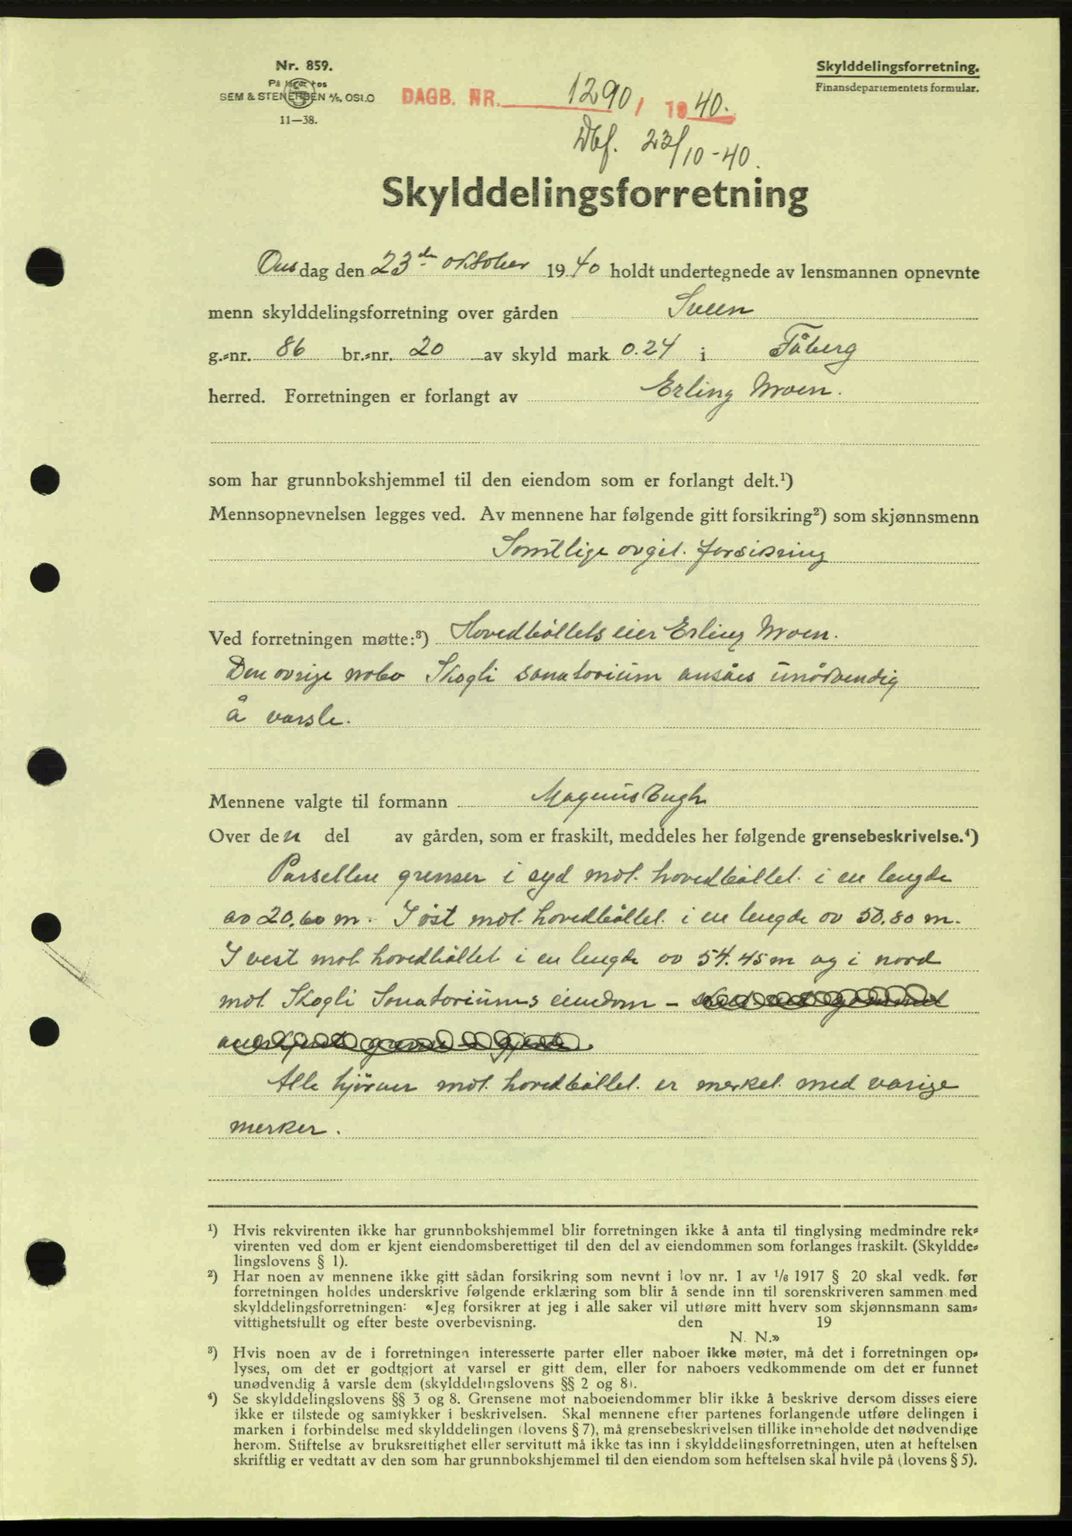 Nr. 859.
På lager hos
SEM & STENERSEN A/S, OSLO
11—38.
DAGB. NR. 1290, 1940.
Dbf. 23/10-40.
Skylddelingsforretning.
Finansdepartementets formular.
Skylddelingsforretning
Onsdag den 23de oktober 1940 holdt undertegnede av lensmannen opnevnte
menn skylddelingsforretning over gården Sveen
g.-nr. 86 br.-nr. 20 av skyld mark 0.24 i Fåberg
herred. Forretningen er forlangt av Erling Moen.
som har grunnbokshjemmel til den eiendom som er forlangt delt.¹)
Mennsopnevnelsen legges ved. Av mennene har følgende gitt forsikring²) som skjønnsmenn
Samtlige avgit. forsikring
Ved forretningen møtte:³) Hovedbøllets eier Erling Moen.
Den øvrige nabo Skogli sanatorium ansåes unødvendig
å varsle.
Mennene valgte til formann Magnus Bugh
Over den del av gården, som er fraskilt, meddeles her følgende grensebeskrivelse.⁴)
Parsellen grenser i syd mot hovedbøllet i en lengde
av 20,60 m. I øst mot hovedbøllet i en lengde av 50.80 m.
I vest mot hovedbøllet i en lengde av 54.45 m og i nord
mot Skogli Sanatoriums eiendom –
Alle hjørner mot hovedbøllet er merket med varige
merker.
¹) Hvis rekvirenten ikke har grunnbokshjemmel blir forretningen ikke å anta til tinglysing medmindre rek-
virenten ved dom er kjent eiendomsberettiget til den del av eiendommen som forlanges fraskilt. (Skyldde-
lingslovens § 1).
²) Har noen av mennene ikke gitt sådan forsikring som nevnt i lov nr. 1 av 1/8 1917 § 20 skal vedk. før
forretningen holdes underskrive følgende erklæring som blir å sende inn til sorenskriveren sammen med
skylddelingsforretningen: «Jeg forsikrer at jeg i alle saker vil utføre mitt hverv som skjønnsmann sam-
vittighetsfullt og efter beste overbevisning. den 19
N. N.»
³) Hvis noen av de i forretningen interesserte parter eller naboer ikke møter, må det i forretningen op-
lyses, om det er godtgjort at varsel er gitt dem, eller for naboers vedkommende om det er funnet
unødvendig å varsle dem (skylddelingslovens §§ 2 og 8).
⁴) Se skylddelingslovens §§ 3 og 8. Grensene mot naboeiendommer blir ikke å beskrive dersom disses eiere
ikke er tilstede og samtykker i beskrivelsen. Skal mennene efter partenes forlangende utføre delingen i
marken i forbindelse med skylddelingen (lovens § 7), må grensebeskrivelsen tillike inneholde det nødvendige
herom. Stiftelse av bruksrettighet eller servitutt må ikke tas inn i skylddelingsforretningen, uten at heftelsen
skriftlig er vedtatt av den som har grunnbokshjemmel til den eiendom som heftelsen skal hvile på (lovens § 5).